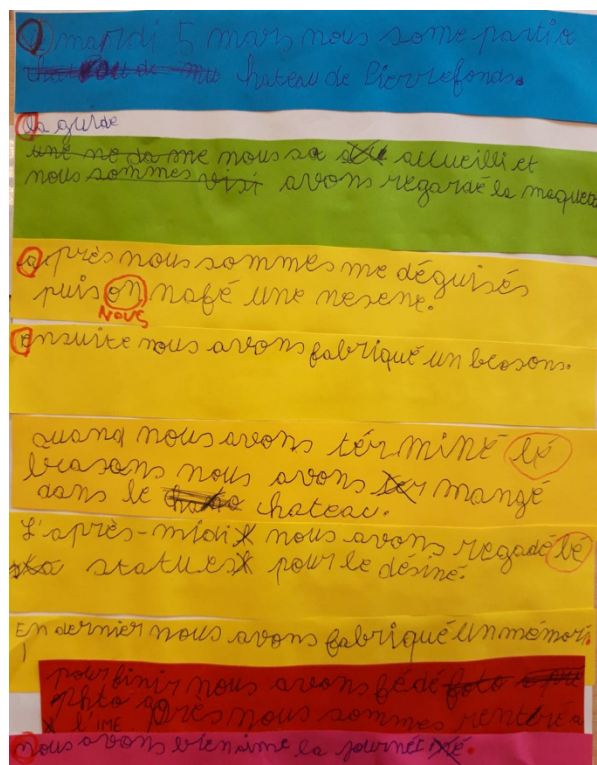 mardi 5 mars nous some partie
hateau de Pierrefonds.
la guide
une me da me nous sa accueilli et
nous sommes visi avons regardé la maquette
après nous sommes me déguisés
puis on nafé une nesene.
NOUS
ensuite nous avons fabriqué un beasons.
quand nous avons términé lé
beasons nous avons mangé
dans le chateau.
L'après-midi nous avons regadé lé
statues pour le désiné.
En dernier nous avons fabriqué un mémori.
pour finir nous avons fédé foto
phto après nous sommes rentré a
l'IME
nous avons bien aime la journée